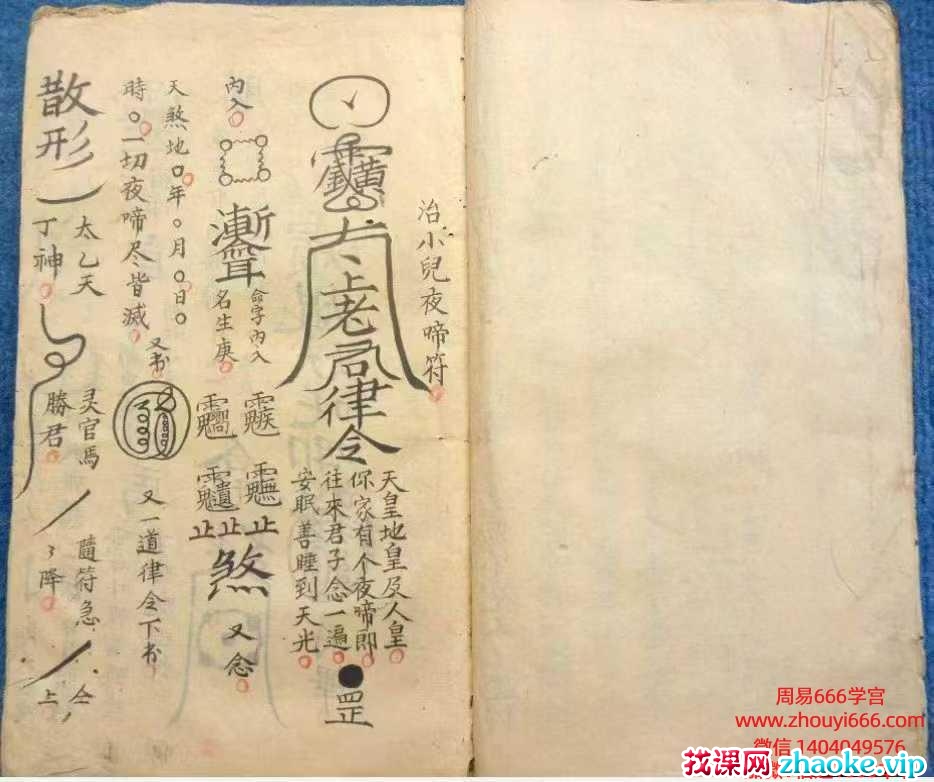 治小兒夜啼符
上老君律令
天皇地皇及人皇
你家有个夜啼郎
往來君子念一遍
安眠善睡到天光
罡
內入
命字內入
名生庚
止止止
煞
又念
天煞地○年○月○日○
時○一切夜啼尽皆滅
又书
又一道律令下书
散形
太乙天
丁神
灵官馬
勝君
隨符急
降
令
上
周易666学宫
www.zhouyi666.com
微信 1404049576
找课网zhaoke.vip